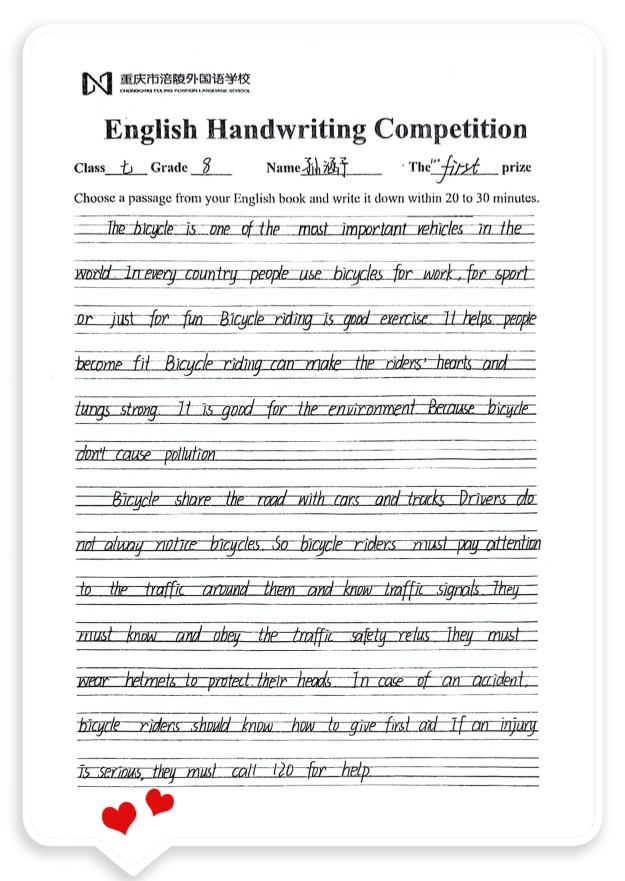 重庆市涪陵外国语学校
CHONGQING FULING FOREIGN LANGUAGE SCHOOL
English Handwriting Competition
Class 七 Grade 8 Name 孙涵予 The "first prize
Choose a passage from your English book and write it down within 20 to 30 minutes.
The bicycle is one of the most important vehicles in the
world. In every country people use bicycles for work, for sport
or just for fun Bicycle riding is good exercise. It helps people
become fit Bicycle riding can make the riders' hearts and
tungs strong. It is good for the environment Because bicycle
don't cause pollution
Bicycle share the road with cars and tracks Drivers do
not alway notice bicycles. So bicycle riders must pay attention
to the traffic around them and know traffic signals. They
must know and obey the traffic safety relus They must
wear helmets to protect their heads. In case of an accident,
bicycle riders should know how to give first aid If an injury
is serious, they must call 120 for help.